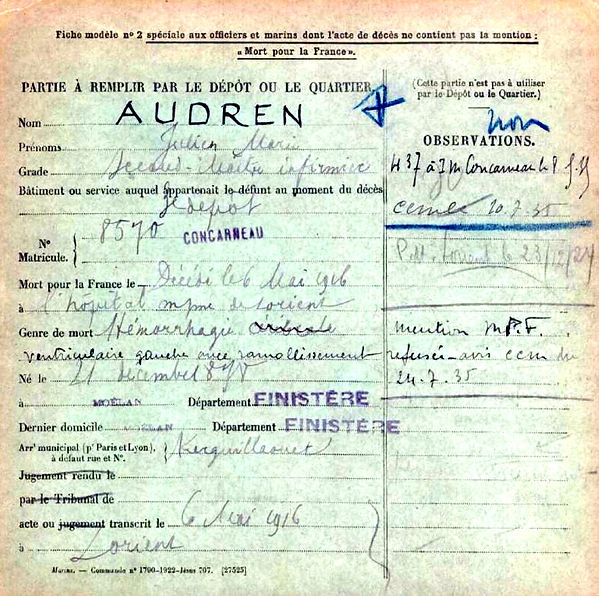 Fiche modèle n° 2 spéciale aux officiers et marins dont l'acte de décès ne contient pas la mention :
« Mort pour la France ».
PARTIE À REMPLIR PAR LE DÉPÔT OU LE QUARTIER.
(Cette partie n'est pas à utiliser
par le Dépôt ou le Quartier.)
Nom AUDREN
non
Prénoms Julien Marie
OBSERVATIONS.
Grade Second-Maître infirmier
437 à I M Concarneau le 8
Bâtiment ou service auquel appartenait le défunt au moment du décès
3e depot
20.7.35
N° Matricule. 8570 CONCARNEAU
Lorient le 23/12/24
Mort pour la France le Décédé le 6 Mai 1916
à l'hôpital mme de Lorient
Genre de mort Hémorrhagie
mention M.P.F.
ventriculaire gauche avec ramollissement
refusée - avis ccm du
24.7.35
Né le 21 décembre 18
à MOËLAN Département FINISTÈRE
Dernier domicile MOËLAN Département FINISTÈRE
Arrt municipal (pr Paris et Lyon), à défaut rue et N°. Kerguillaouet
Jugement rendu le
par le Tribunal de
acte ou jugement transcrit le 6 Mai 1916
à Lorient
Marine. — Commande n° 1700-1922-Jésus 707. [27525]